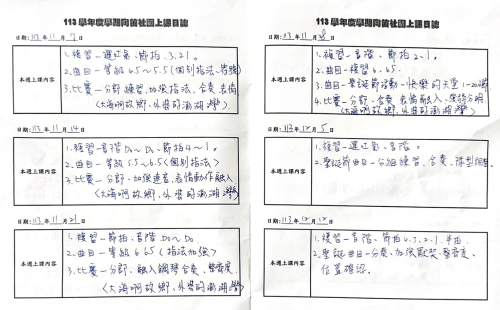 113 學年度學期陶笛社團上課日誌
日期:113年11月7日
本週上課內容
1.複習-運氣、節拍、3.2.1。
2.曲目-等級4.5~5.5(個別指法、
3.比賽-分部練習、加強指法、合奏、表情
(大海啊故鄉、外婆的澎湖灣)
日期:113年11月14日
本週上課內容
1.複習-音階Do~Do、節拍4~1。
2.曲目-等級5.5~6.5(個別指法)
3.比賽-分部、加強速度、表情動作融入
(大海啊故鄉、外婆的澎湖灣)
日期:113年11月21日
本週上課內容
1.複習-節拍、音階Do~Do
2.曲目-等級6.6.5(指法加強)
3.比賽-分部、融入鋼琴合奏、整齊度
(大海啊故鄉、外婆的澎湖灣)
113 學年度學期陶笛社團上課日誌
日期:113年11月28日
本週上課內容
1.複習-音階、節拍2.1。
2.曲目-複習6.6.5。
3.曲目-聖誕節活動-快樂的天堂1-20小節
4.比賽-分部、合奏、表情融入、
(大海啊故鄉、外婆的澎湖灣)
日期:113年12月5日
本週上課內容
1.複習-運氣、音階。
2.聖誕節曲目-分組練習、合奏、隊型
日期:113年12月12日
本週上課內容
1.複習-音階、節拍4.3.2.1.半拍。
2.聖誕曲目-分奏、加強默契、整齊度、
位置確認。